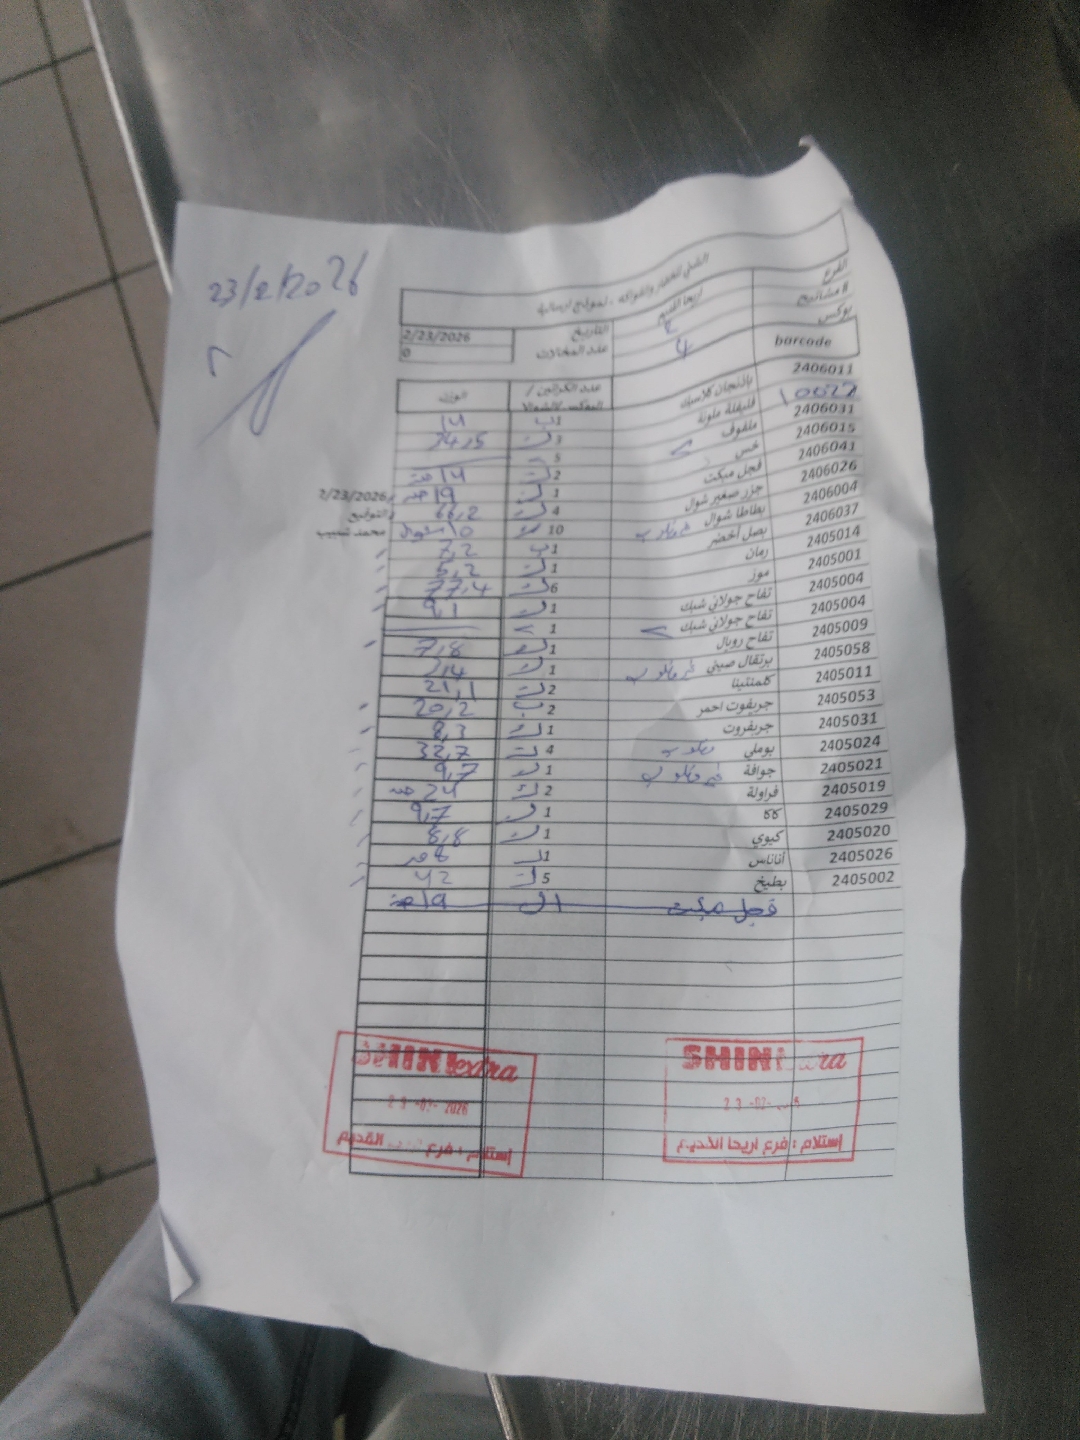 23/2/2026
الشني للخضار والفواكه - نموذج ارسالية
الفرع اريحا القديم التاريخ 2/23/2026
# مشاتيح 2 0
بوكس 4
barcode عدد الكراتين / البوكس /الشوال الوزن
2406011 باذنجان كلاسيك 1ب 14
10027 فليفلة ملونة 3 ك 24,5
2406031 ملفوف 5
2406015 خس 2 ك 14
2406041 فجل مبكت 1 ك 19
2406026 جزر صغير شوال 4 ك 66,2
2406004 بطاطا شوال 10 10 شوال
2406037 بصل أخضر 1ب 7,2
2405014 رمان 1 ك 5,2
2405001 موز 6 ك 77,4
2405004 تفاح جولاني شبك 1 ك 9,1
2405004 تفاح جولاني شبك 1
2405009 تفاح رويال 1 ك 7,8
2405058 برتقال صيني 1 ك
2405011 كلمنتينا 2 ك 21,1
2405053 جريفوت احمر 2 ب 20,2
2405031 جريفروت 1 ك 8,3
2405024 بوملي 4 ك 32,7
2405021 جوافة 1 ك 9,7
2405019 فراولة 2 ك 24
2405029 كاكا 1 ك 9,7
2405020 كيوي 1 ك 8,8
2405026 أناناس 1ك 8
2405002 بطيخ 5 ك 42
فجل مبكت 1 ك 19
2/23/2026
التوقيع
محمد شبيب
SHINI extra
23 -02- 2026
إستلام : فرع اريحا القديم
SHINI extra
23 -02-
إستلام : فرع اريحا القديم